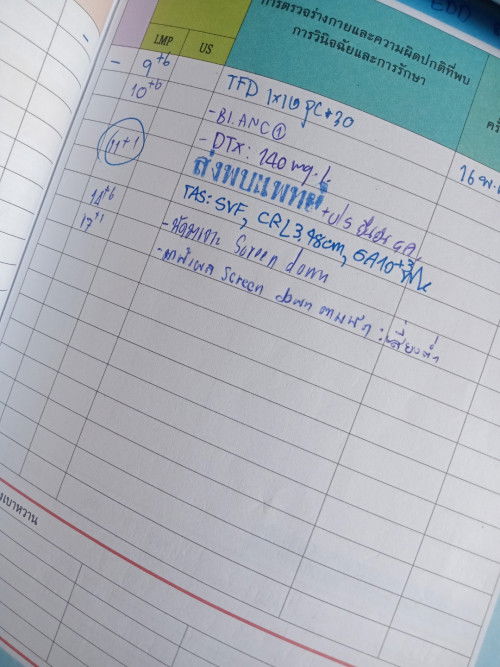 EDD
การตรวจร่างกายและความผิดปกติที่พบ
การวินิจฉัยและการรักษา
LMP US
- 9+6 TFD 1x1 pc #30
10+6 - Bl. ANC①
- DTX: 140 mg.%
11+1 ส่งพบแพทย์ + U/S ยืนยัน GA.
TAS: SVF, CRL 3.98cm, GA 10+3
14+6 - นัดเจาะ Screen down
17+1 - มาฟังผล Screen down ตามนัด : เสี่ยงต่ำ
16 พ.
เบาหวาน